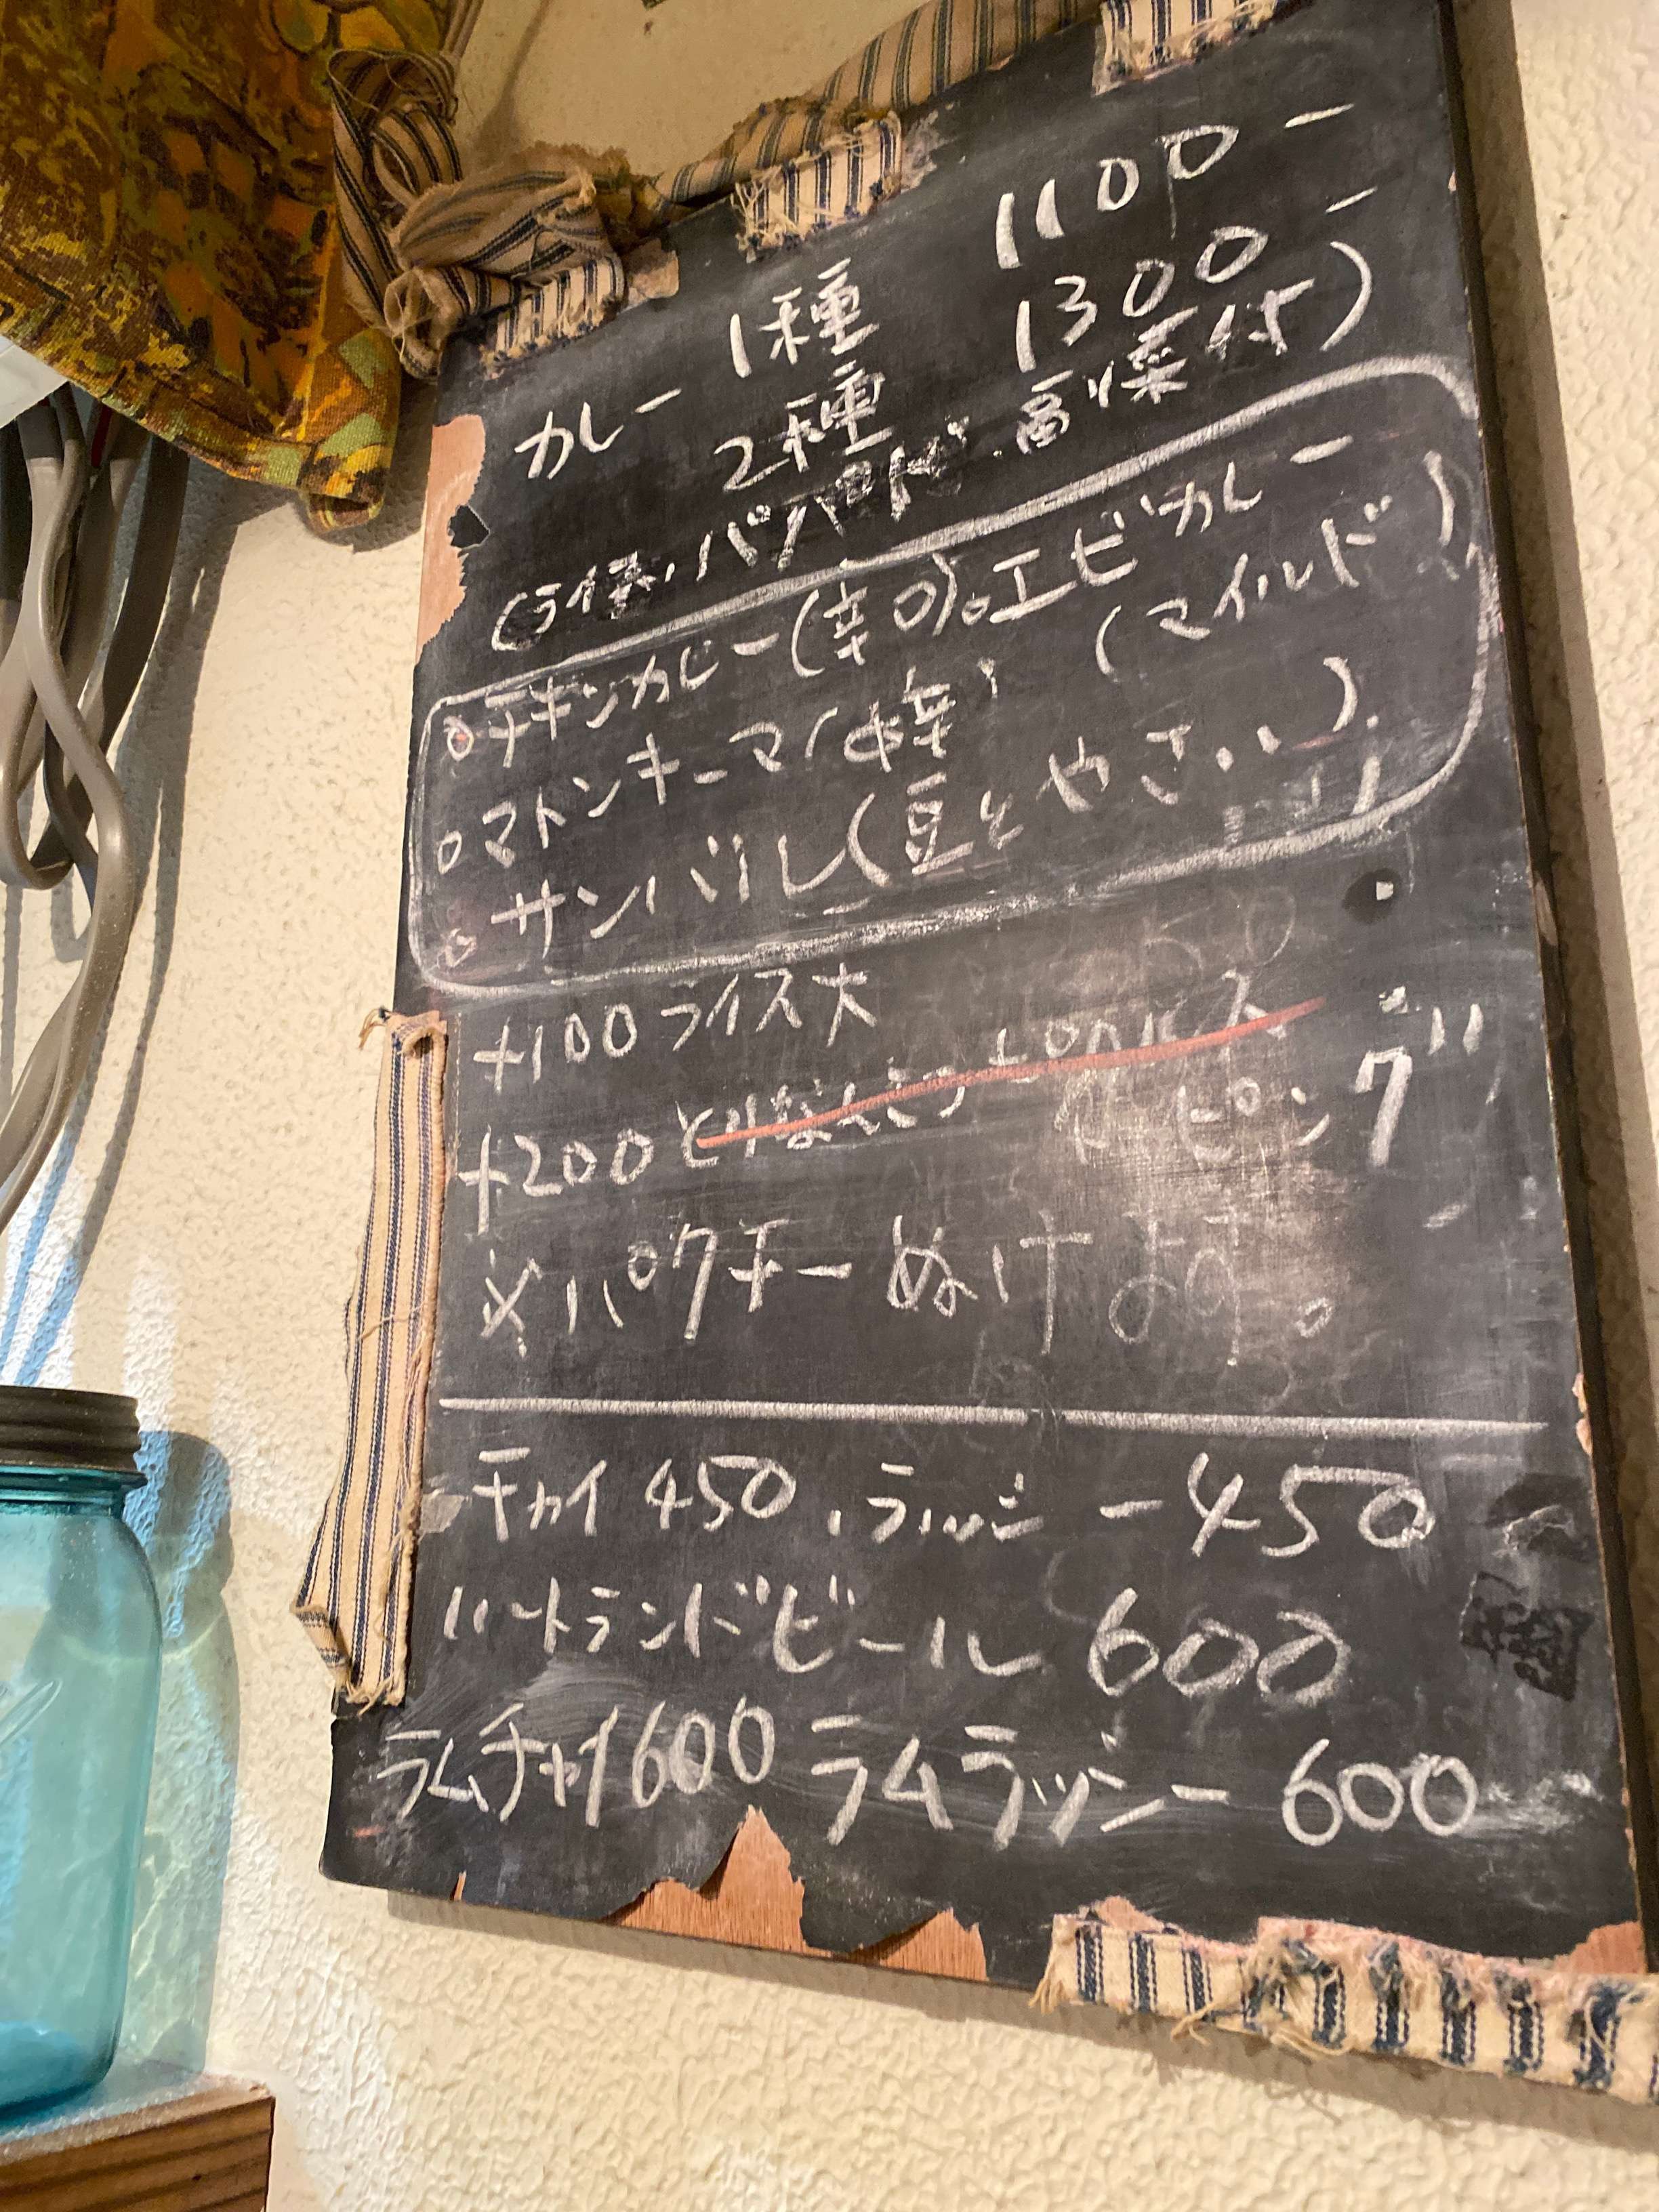 カレー 1種 1100-
2種 1300-
(ライス、パパド、副菜付)
○チキンカレー(辛口)○エビカレー
(マイルド)
○マトンキーマ(中辛)
○サンバル(豆とやさい)
+100ライス大
+200 トッピング
※パクチーぬけます。
チャイ450、ラッシー450
ハートランドビール 600
ラムチャイ600 ラムラッシー600